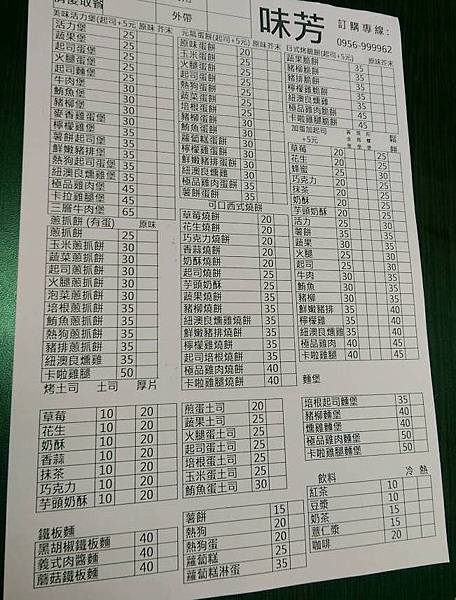 請後取餐
外帶
味芳
訂購專線:
0956-999962
美味活力堡(起司+5元) 原味 芥末
活力堡 25
蔬果堡 25
火腿堡 25
起司堡 25
牛肉堡 30
鮪魚堡 30
豬柳堡 30
麥香雞堡 30
檸檬雞堡 30
薯餅起司堡 30
鮮嫩豬排堡 30
熱狗起司蛋堡 35
紐澳良燻雞堡 35
極品雞肉堡 45
卡拉雞腿堡 45
三層牛肉堡 65
蔥抓餅 (有蛋) 原味
蔥抓餅 25
玉米蔥抓餅 30
蔬菜蔥抓餅 30
起司蔥抓餅 30
火腿蔥抓餅 30
泡菜蔥抓餅 30
培根蔥抓餅 35
鮪魚蔥抓餅 35
熱狗蔥抓餅 35
豬排蔥抓餅 35
紐澳良燻雞 35
卡啦雞腿 50
烤土司 土司 厚片
草莓 10 20
花生 10 20
奶酥 10 20
香蒜 10 20
抹茶 10 20
巧克力 10 20
芋頭奶酥 10 20
鐵板麵
黑胡椒鐵板麵 40
義式肉醬麵 40
蘑菇鐵板麵 40
元氣蛋餅(起司+5元) 原味 芥末
原味蛋餅 20
玉米蛋餅 25
火腿蛋餅 25
起司蛋餅 25
熱狗蛋餅 25
蔬菜蛋餅 25
培根蛋餅 30
豬柳蛋餅 30
鮪魚蛋餅 30
檸檬雞蛋餅 30
鮮嫩豬排蛋餅 30
紐澳良燻雞蛋餅 35
極品雞肉蛋餅 35
薯餅蛋餅 30
可口西式燒餅
草莓燒餅 20
花生燒餅 20
巧克力燒餅 20
香蒜燒餅 20
奶酥燒餅 20
芋頭奶酥 20
蔬果燒餅 35
豬柳燒餅 35
紐澳良燻雞燒餅 35
檸檬雞燒餅 35
起司培根燒餅 35
極品雞肉燒餅 40
卡啦雞腿燒餅 40
煎蛋土司 20
蔬果土司 25
火腿蛋土司 25
起司蛋土司 25
培根蛋土司 25
玉米蛋土司 25
鮪魚蛋土司 30
薯餅 15
熱狗 20
熱狗蛋 25
蘿蔔糕 25
蘿蔔糕淋蛋 35
日式烤脆餅(起司+5元) 原味 芥末
蔬果脆餅 35
豬柳脆餅 35
鮪魚脆餅 35
紐澳良燻雞 35
極品雞肉脆餅 45
卡啦雞腿脆餅 45
加蛋加起司
+5元
鬆餅
草莓 20 25
花生 20 25
蜂蜜 25
巧克力 20 25
抹茶 20 25
奶酥 20 25
芋頭奶酥 20 25
活力
薯餅 30 35
蔬果 30
火腿
起司
牛肉
鮪魚 30
豬柳 30
鮮嫩豬排
檸檬雞
紐澳良燻雞
極品雞肉 40 45
卡啦雞腿 40 45
麵堡
培根起司麵堡 35
豬柳麵堡 40
燻雞麵堡 40
極品雞肉麵堡 50
卡啦雞腿麵堡 50
飲料 冷 熱
紅茶 10
豆漿 10
奶茶 15
薏仁漿 15
咖啡 20